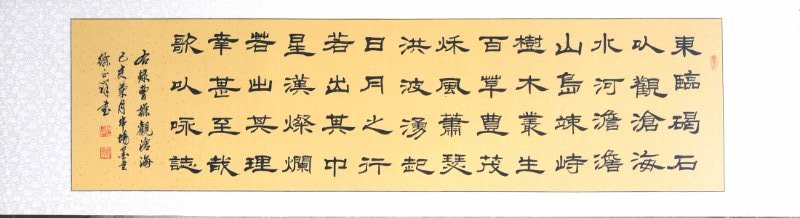 東臨碣石
以觀滄海
水河澹澹
山島竦峙
樹木叢生
百草豊茂
秋風蕭瑟
洪波湧起
日月之行
若出其中
星漢燦爛
若出其理
幸甚至哉
歌以咏誌
右录曹操觀滄海
己亥 月
徐 书